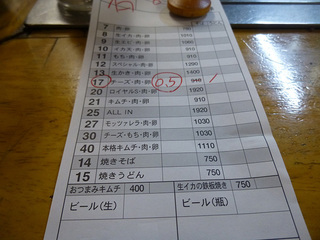 7 肉・卵
8 生イカ・肉・卵
9 生エビ・肉・卵 1080
10 イカ天・肉・卵 910
11 もち・肉・卵 910
12 スペシャル・肉・卵 1290
13 生かき・肉・卵 1400
17 チーズ・肉・卵 0.5 910
20 ロイヤルS・肉・卵 1920
21 キムチ・肉・卵 910
25 ALL IN 1920
27 モッツァレラ・肉・卵 1030
30 チーズ・もち・肉・卵 1030
40 本格キムチ・肉・卵 1110
14 焼きそば 750
15 焼きうどん 750
おつまみキムチ 400 生イカの鉄板焼き 750
ビール(生) ビール(瓶)